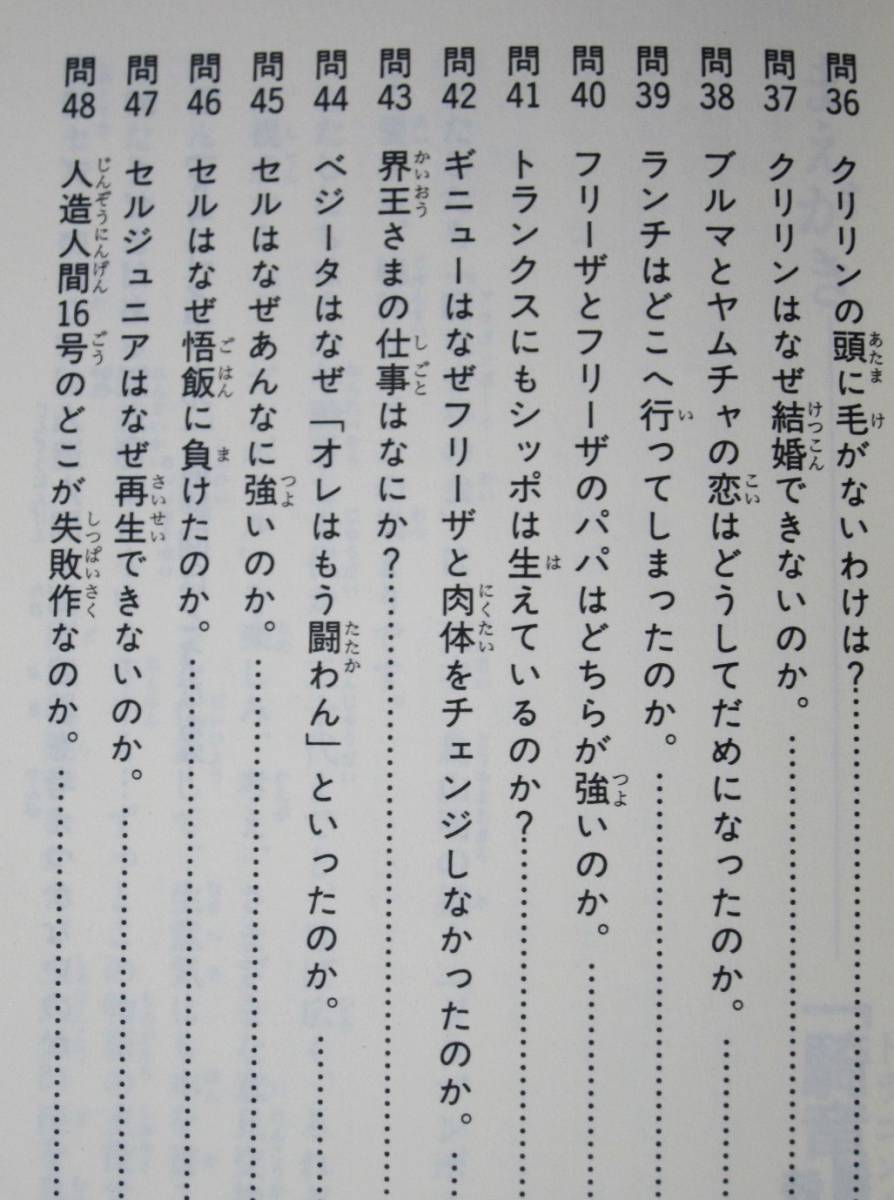 問36 クリリンの頭に毛がないわけは？
問37 クリリンはなぜ結婚できないのか。
問38 ブルマとヤムチャの恋はどうしてだめになったのか。
問39 ランチはどこへ行ってしまったのか。
問40 フリーザとフリーザのパパはどちらが強いのか。
問41 トランクスにもシッポは生えているのか？
問42 ギニューはなぜフリーザと肉体をチェンジしなかったのか。
問43 界王さまの仕事はなにか？
問44 ベジータはなぜ「オレはもう闘わん」といったのか。
問45 セルはなぜあんなに強いのか。
問46 セルはなぜ悟飯に負けたのか。
問47 セルジュニアはなぜ再生できないのか。
問48 人造人間16号のどこが失敗作なのか。